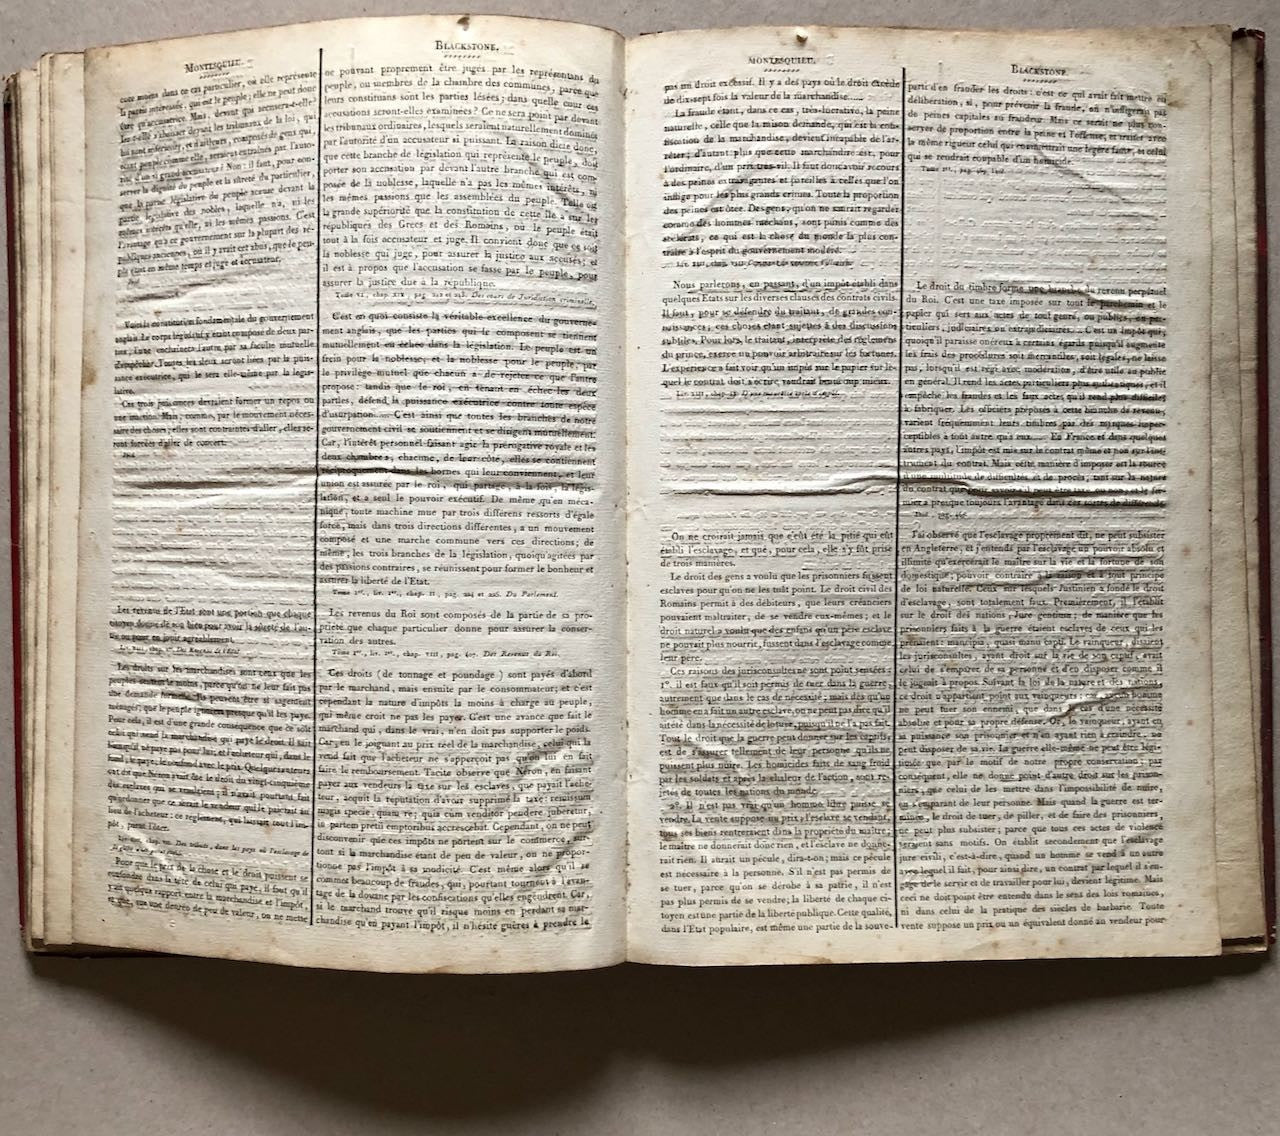 MONTESQUIEU.
core moins dans ce cas particulier, où elle représente
la partie intéressée, qui est le peuple; elle ne peut donc
être qu'accusatrice. Mais, devant qui accusera-t-elle?
Ira-t-elle s'abaisser devant les tribunaux de la loi, qui
lui sont inférieurs, et d'ailleurs, composés de gens qui,
étant peuple comme elle, seraient entraînés par l'auto-
rité d'un si grand accusateur? Non: il faut, pour con-
server la dignité du peuple et la sûreté du particulier,
que la partie législative du peuple accuse devant la
partie législative des nobles, laquelle n'a, ni les
mêmes intérêts qu'elle, ni les mêmes passions. C'est
l'avantage qu'a ce gouvernement sur la plupart des ré-
publiques anciennes, où il y avait cet abus, que le peu-
ple était en même temps et juge et accusateur.
Ibid.
Voici la constitution fondamentale du gouvernement
anglais. Le corps législatif y étant composé de deux par-
ties, l'une enchaînera l'autre par sa faculté mutuelle
d'empêcher. Toutes les deux seront liées par la puis-
sance exécutrice, qui le sera elle-même par la légis-
lative.
Ces trois puissances devraient former un repos ou
une inaction. Mais, comme, par le mouvement néces-
saire des choses, elles sont contraintes d'aller, elles se-
ront forcées d'aller de concert.
Ibid.
Les revenus de l'État sont une portion que chaque
citoyen donne de son bien pour avoir la sûreté de l'au-
tre ou pour en jouir agréablement.
Liv. XIII, chap. Ier. Des Revenus de l'État.
Les droits sur les marchandises sont ceux que les
peuples sentent le moins, parce qu'on ne leur fait pas
une demande formelle. Ils peuvent être si sagement
ménagés, que le peuple ignorera presque qu'il les paye.
Pour cela, il est d'une grande conséquence que ce soit
celui qui vend la marchandise qui paye le droit. Il sait
bien qu'il ne paye pas pour lui; et l'acheteur qui, dans le
fond, le paye, le confond avec le prix. Quelques auteurs
ont dit que Néron avait ôté le droit du vingt-cinquième
des esclaves qui se vendaient; il n'avait pourtant fait
qu'ordonner que ce serait le vendeur qui le paierait au
lieu de l'acheteur: ce règlement, qui laissait tout l'im-
pôt, parut l'ôter.
chap. VII. Des tributs, dans les pays où l'esclavage de
Pour que le prix de la chose et le droit puissent se
confondre dans la tête de celui qui paye, il faut qu'il
y ait quelque rapport entre la marchandise et l'impôt,
et que, sur une denrée de peu de valeur, on ne mette
BLACKSTONE.
ne pouvant proprement être jugés par les représentans du
peuple, ou membres de la chambre des communes, parce que
leurs constituans sont les parties lésées; dans quelle cour ces
accusations seront-elles examinées? Ce ne sera point par devant
les tribunaux ordinaires, lesquels seraient naturellement dominés
par l'autorité d'un accusateur si puissant. La raison dicte donc,
que cette branche de législation qui représente le peuple, doit
porter son accusation par devant l'autre branche qui est com-
posée de la noblesse, laquelle n'a pas les mêmes intérêts, ni
les mêmes passions que les assemblées du peuple. Telle est
la grande supériorité que la constitution de cette île a sur les
républiques des Grecs et des Romains, où le peuple était
tout à la fois accusateur et juge. Il convient donc que ce soit
la noblesse qui juge, pour assurer la justice aux accusés; et
il est à propos que l'accusation se fasse par le peuple, pour
assurer la justice due à la république.
Tome VI, chap. XIX, pag. 212 et 213. Des cours de Juridiction criminelle.
C'est en quoi consiste la véritable excellence du gouverne-
ment anglais, que les parties qui le composent se tiennent
mutuellement en échec dans la législation. Le peuple est un
frein pour la noblesse, et la noblesse pour le peuple, par
le privilège mutuel que chacun a de rejeter ce que l'autre
propose: tandis que le roi, en tenant en échec les deux
parties, défend la puissance exécutrice contre toute espèce
d'usurpation..... C'est ainsi que toutes les branches de notre
gouvernement civil se soutiennent et se dirigent mutuellement.
Car, l'intérêt personnel faisant agir la prérogative royale et les
deux chambres, chacune, de leur côté, elles se contiennent
réciproquement dans les bornes qui leur conviennent, et leur
union est assurée par le roi, qui partage, à la fois, la légis-
lation, et a seul le pouvoir exécutif. De même qu'en méca-
nique, toute machine mue par trois différens ressorts d'égale
force, mais dans trois directions différentes, a un mouvement
composé et une marche commune vers ces directions; de
même, les trois branches de la législation, quoiqu'agitées par
des passions contraires, se réunissent pour former le bonheur et
assurer la liberté de l'Etat.
Tome Ier, liv. Ier, chap. II, pag. 224 et 226. Du Parlement.
Les revenus du Roi sont composés de la partie de sa pro-
priété que chaque particulier donne pour assurer la conser-
vation des autres.
Tome Ier, liv. Ier, chap. VIII, pag. 407. Des Revenus du Roi.
Ces droits (de tonnage et poundage) sont payés d'abord
par le marchand, mais ensuite par le consommateur; et c'est
cependant la nature d'impôts la moins à charge au peuple,
qui même croit ne pas les payer. C'est une avance que fait le
marchand qui, dans le vrai, n'en doit pas supporter le poids.
Car, en le joignant au prix réel de la marchandise, celui qui la
vend fait que l'acheteur ne s'apperçoit pas qu'on lui en fait
faire le remboursement. Tacite observe que Néron, en faisant
payer aux vendeurs la taxe sur les esclaves, que payait l'ache-
teur, acquit la réputation d'avoir supprimé la taxe: remissum
magis specie, quam re; quia cum venditor pendere juberetur,
in partem pretii emptoribus accrescebat. Cependant, on ne peut
disconvenir que ces impôts ne portent sur le commerce, sur-
tont si la marchandise étant de peu de valeur, on ne propor-
tionne pas l'impôt à sa modicité. C'est même alors qu'il se
commet beaucoup de fraudes, qui, pourtant tournent à l'avan-
tage de la douane par les confiscations qu'elles engendrent. Car,
si le marchand trouve qu'il risque moins en perdant sa mar-
chandise qu'en payant l'impôt, il n'hésite guères à prendre le
MONTESQUIEU.
pas un droit excessif. Il y a des pays où le droit excède
de dix-sept fois la valeur de la marchandise.....
La fraude étant, dans ce cas, très-lucrative, la peine
naturelle, celle que la raison demande, qui est la confis-
cation de la marchandise, devient incapable de l'ar-
rêter; d'autant plus que cette marchandise est, pour
l'ordinaire, d'un prix très-vil. Il faut donc avoir recours
à des peines extravagantes et pareilles à celles que l'on
inflige pour les plus grands crimes. Toute la proportion
des peines est ôtée. Des gens, qu'on ne saurait regarder
comme des hommes méchans, sont punis comme des
scélérats, ce qui est la chose du monde la plus con-
traire à l'esprit du gouvernement modéré.
Liv. XIII, chap. VIII
Nous parlerons, en passant, d'un impôt établi dans
quelques Etats sur les diverses clauses des contrats civils.
Il faut, pour se défendre du traitant, de grandes con-
naissances; ces choses étant sujettes à des discussions
subtiles. Pour lors, le traitant, interprète des règlemens
du prince, exerce un pouvoir arbitraire sur les fortunes.
L'expérience a fait voir qu'un impôt sur le papier sur le-
quel le contrat doit s'écrire, vaudrait beaucoup mieux.
Liv. XIII, chap. D'une nouvelle sorte d'impôt.
On ne croirait jamais que c'eût été la pitié qui eût
établi l'esclavage, et que, pour cela, elle s'y fût prise
de trois manières.
Le droit des gens a voulu que les prisonniers fussent
esclaves pour qu'on ne les tuât point. Le droit civil des
Romains permit à des débiteurs, que leurs créanciers
pouvaient maltraiter, de se vendre eux-mêmes; et le
droit naturel a voulu que des enfans qu'un père esclave
ne pouvait plus nourrir, fussent dans l'esclavage comme
leur père.
Ces raisons des jurisconsultes ne sont point sensées:
1°. il est faux qu'il soit permis de tuer dans la guerre,
autrement que dans le cas de nécessité; mais dès qu'un
homme en a fait un autre esclave, on ne peut pas dire qu'il
ait été dans la nécessité de le tuer, puisqu'il ne l'a pas fait.
Tout le droit que la guerre peut donner sur les captifs,
est de s'assurer tellement de leur personne qu'ils ne
puissent plus nuire. Les homicides faits de sang froid
par les soldats et après la chaleur de l'action, sont re-
jetés de toutes les nations du monde.
2°. Il n'est pas vrai qu'un homme libre puisse se
vendre. La vente suppose un prix; l'esclave se vendant,
tous ses biens rentreraient dans la propriété du maître;
le maître ne donnerait donc rien, et l'esclave ne donne-
rait rien. Il aurait un pécule, dira-t-on; mais ce pécule
est nécessaire à la personne. S'il n'est pas permis de
se tuer, parce qu'on se dérobe à sa patrie, il n'est
pas plus permis de se vendre; la liberté de chaque ci-
toyen est une partie de la liberté publique. Cette qualité,
dans l'Etat populaire, est même une partie de la souve-
BLACKSTONE.
parti d'en frauder les droits: c'est ce qui avait fait mettre en
délibération, si, pour prévenir la fraude, on n'infligerait pas
de peines capitales au fraudeur. Mais ce serait ne plus con-
server de proportion entre la peine et l'offense, et traiter avec
la même rigueur celui qui commettrait une légère faute, et celui
qui se rendrait coupable d'un homicide.
Tome Ier., pag. Ibid.
Le droit du timbre forme une branche du revenu perpétuel
du Roi. C'est une taxe imposée sur tout le parchemin et le
papier qui sert aux actes de tout genre, ou publics, ou par-
ticuliers, judiciaires ou extrajudiciaires..... C'est un impôt qui,
quoiqu'il paraisse onéreux à certains égards puisqu'il augmente
les frais des procédures soit mercantiles, soit légales, ne laisse
pas, lorsqu'il est régi avec modération, d'être utile au public
en général. Il rend les actes particuliers plus authentiques, et il
empêche les fraudes et les faux actes, qu'il rend plus difficiles
à fabriquer. Les officiers préposés à cette branche de revenu,
varient fréquemment leurs timbres par des marques imper-
ceptibles à tout autre qu'à eux..... En France et dans quelques
autres pays, l'impôt est mis sur le contrat même et non sur l'ins-
trument du contrat. Mais cette manière d'imposer est la source
d'une multitude de difficultés et de procès, tant sur la nature
du contrat que pour savoir s'il peut être taxé ou non; et le fer-
mier a presque toujours l'avantage dans ces sortes de difficultés.
Ibid., pag.
J'ai observé que l'esclavage proprement dit, ne peut subsister
en Angleterre, et j'entends par l'esclavage un pouvoir absolu et
illimité qu'exercerait le maître sur la vie et la fortune de son
domestique; pouvoir contraire à la raison et à tout principe
de loi naturelle. Ceux sur lesquels Justinien a fondé le droit
d'esclavage, sont totalement faux. Premièrement, il l'établit
sur le droit des nations, Jure gentium; de manière que les
prisonniers faits à la guerre étaient esclaves de ceux qui les
prenaient mancipia, quasi manu capti. Le vainqueur, disaient
les jurisconsultes, ayant droit sur la vie de son captif, avait
celui de s'emparer de sa personne et d'en disposer comme il
le jugeait à propos. Suivant la loi de la nature et des nations,
ce droit n'appartient point aux vainqueurs; car, aucun homme
ne peut tuer son ennemi, que dans le cas d'une nécessité
absolue et pour sa propre défense. Or, le vainqueur, ayant en
sa puissance son prisonnier et n'en ayant rien à craindre, ne
peut disposer de sa vie. La guerre elle-même ne peut être légi-
timée que par le motif de notre propre conservation; par
conséquent, elle ne donne point d'autre droit sur les prison-
niers, que celui de les mettre dans l'impossibilité de nuire,
en s'emparant de leur personne. Mais quand la guerre est ter-
minée, le droit de tuer, de piller, et de faire des prisonniers,
ne peut plus subsister; parce que tous ces actes de violence
seraient sans motifs. On établit secondement que l'esclavage
jure civili, c'est-à-dire, quand un homme se vend à un autre
avec lequel il fait, pour ainsi dire, un contrat par lequel il s'en-
gage de le servir et de travailler pour lui, devient légitime. Mais
ceci ne doit point être entendu dans le sens des lois romaines,
ni dans celui de la pratique des siècles de barbarie. Toute
vente suppose un prix ou un équivalent donné au vendeur pour